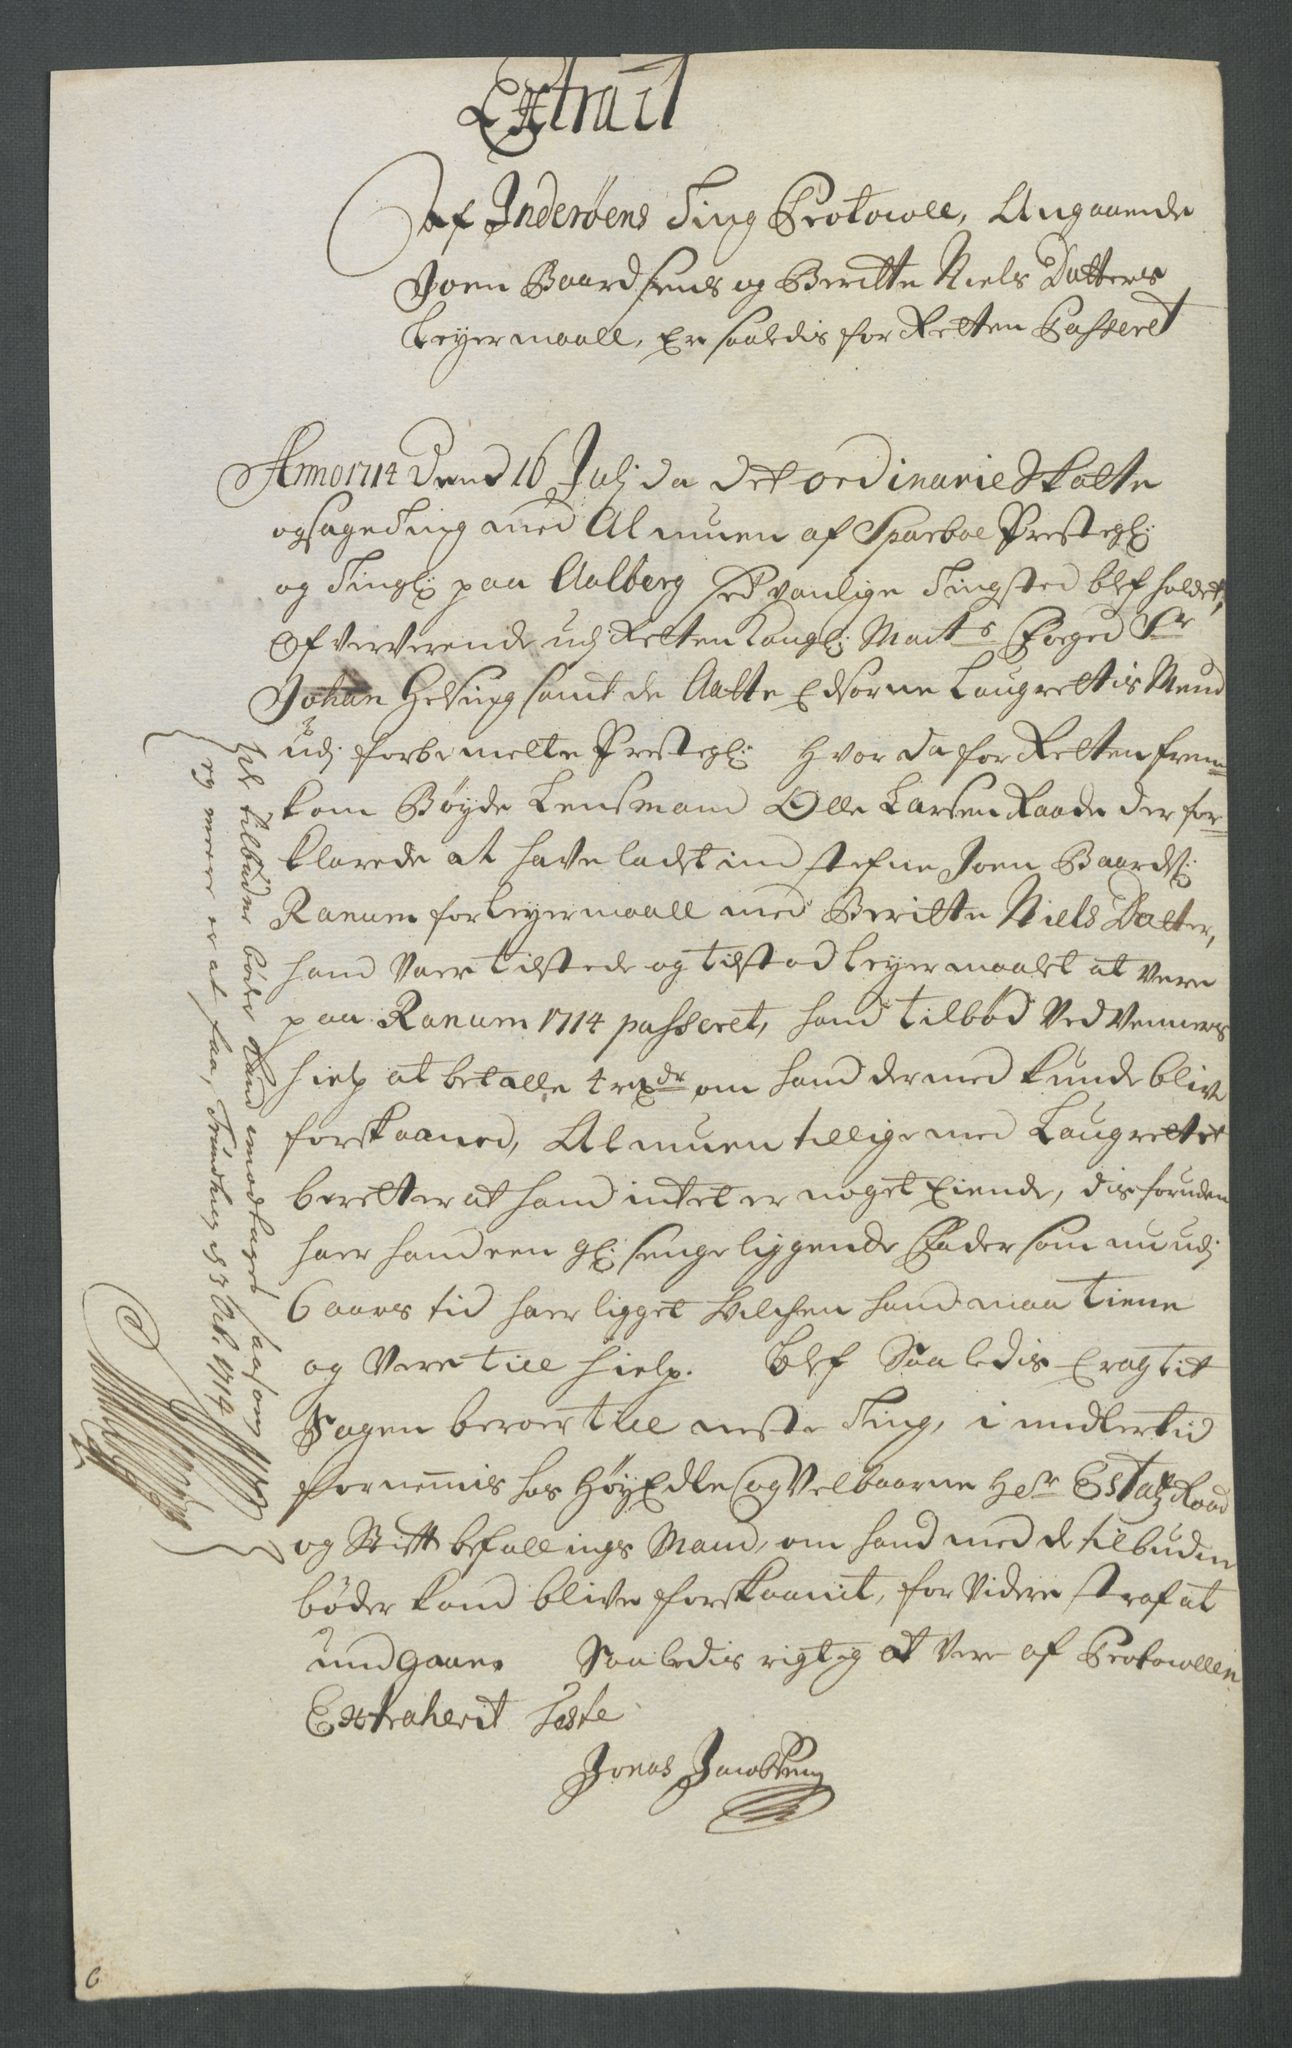 Extract
Af Inderøens Ting Protocoll, Angaaende
Joen Baardsens og Beritte Niels Datters
Leyermaall, Er saaledis for Retten Passeret
Anno 1714 Dend 16 Julj da det ordinarie Skatte
og sageting med Almuen af Sparboe Prestegl:
og Tingl: paa Aalberg sædvanlige Tingsted blef holdet,
Ofververende udj Retten Kongl: Maits Foged Sr
Johan Hesing samt de Aatte Edsorne Laugrettis Mend
udj forbemelte Prestegl: Hvor da for Retten frem-
kom Bøyde Lensmand Olle Larsen Raade der for-
klarede at have ladet ind stefne Joen Baards:
Ranum for leyermaall med Beritte Niels Datter,
hand Vaer tilstede og tilstod leyermaalet at Vere
paa Ranum 1714 passeret, hand tilbød Ved Venners
hielp at betalle 4 rixdr om hand dermed kunde blive
forskaaned, Almuen tillige med Laugrettet
beretter at hand intet er noget Eiende, dis foruden
haer hand een gl: sengeliggende Fader som nu udj
6 aars tid haer ligget hvilchen hand maa tiene
og Vere till hielp. Blef Saaledis Eragtit
Sagen beroer till neste Ting, imidlertid
fornemmis hos HøyEdle og Velbaarne Hr Estatz Raad
og Stift befallings Mand, om hand med de tilbudne
bøder kand blive forskaanit, for Videre straf at
undgaae. Saaledis rigtig at Vere af Protocollen
Extraherit Teste
Jonas Jacobsen
De tilbudne bøder kand imodtages saasom
ej meere er at faa, Trundhm d 3 Oct. 1714